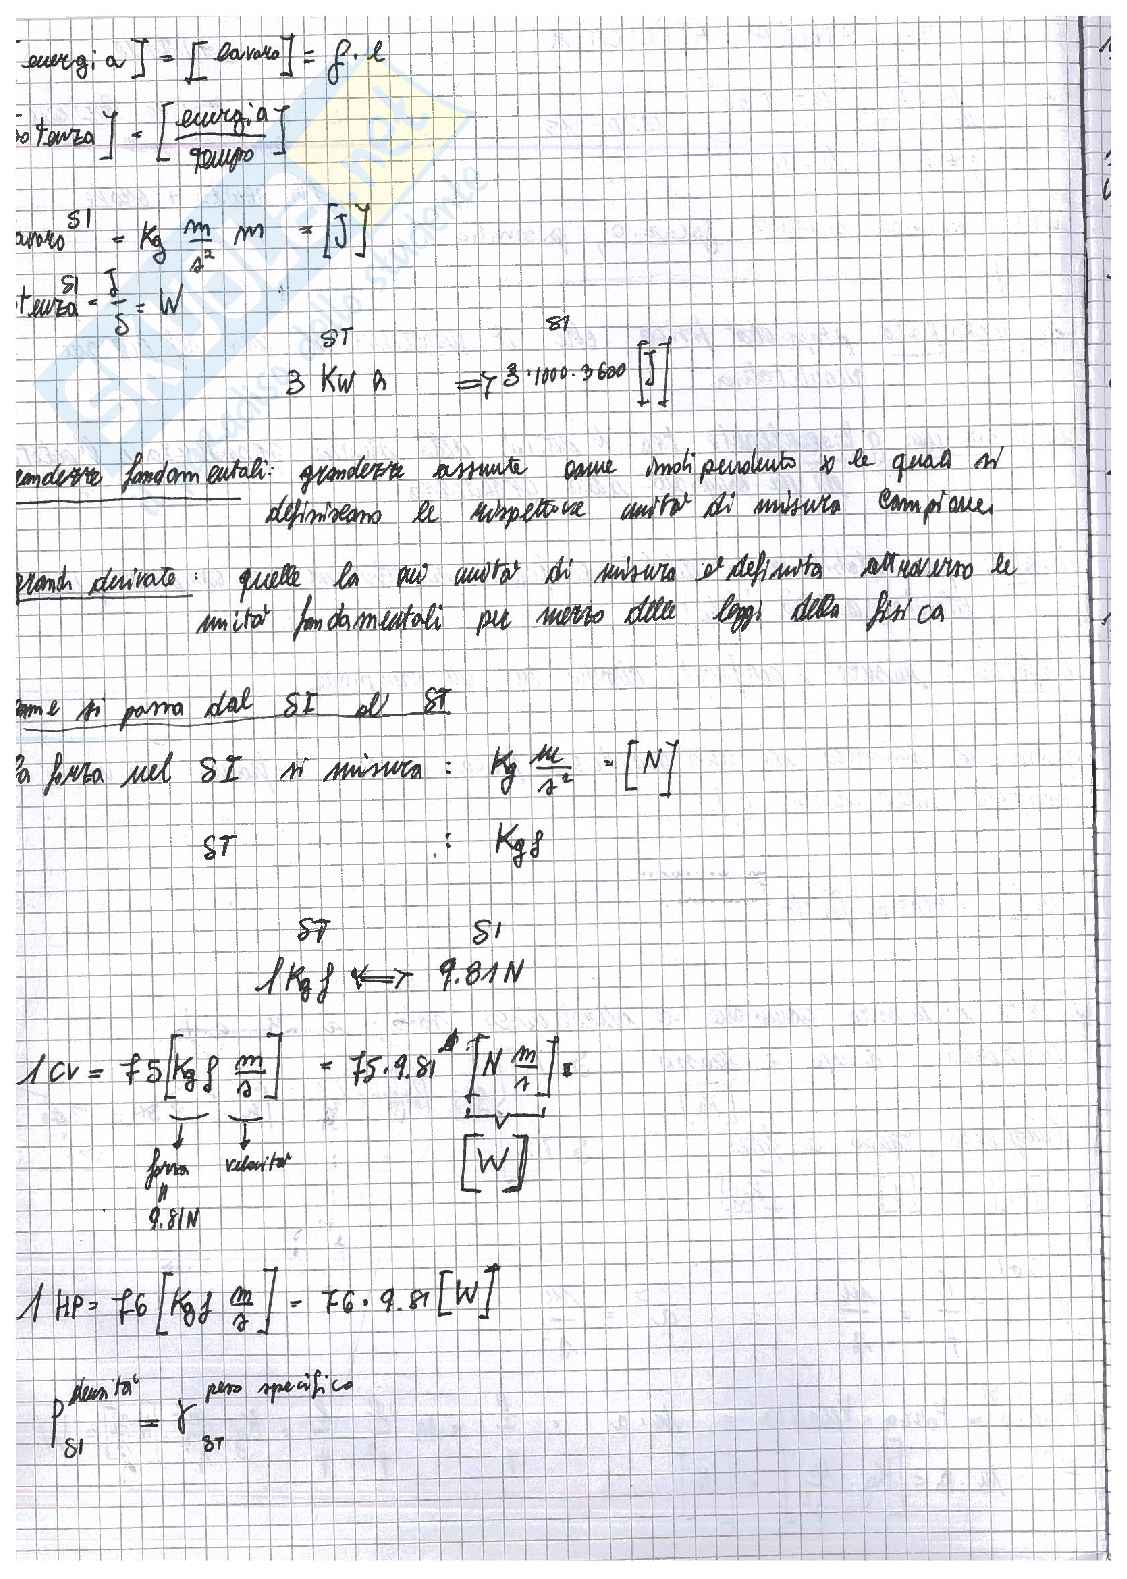 energia] = [lavoro] = f · l
otenza] = [energia / tempo]
avoro SI = Kg m/s² m = [J]
tenza SI = J/s = W
ST SI
3 KW h => 3·1000·3600 [J]
randezze fondamentali: grandezze assunte come indipendenti x le quali si
definiscono le rispettive unità di misura campione.
grandi derivate: quelle la cui unità di misura è definita attraverso le
unità fondamentali per mezzo delle leggi della fisica
ome si passa dal SI al ST
a forza nel SI si misura: Kg m/s² = [N]
ST : Kgf
ST SI
1 Kgf <=> 9.81 N
1 CV = 75 [Kgf m/s] = 75·9.81 [N m/s] =
forza velocità [W]
=
9.81 N
1 HP = 76 [Kgf m/s] = 76·9.81 [W]
ρ densità SI = γ peso specifico ST
SKUOLA.net